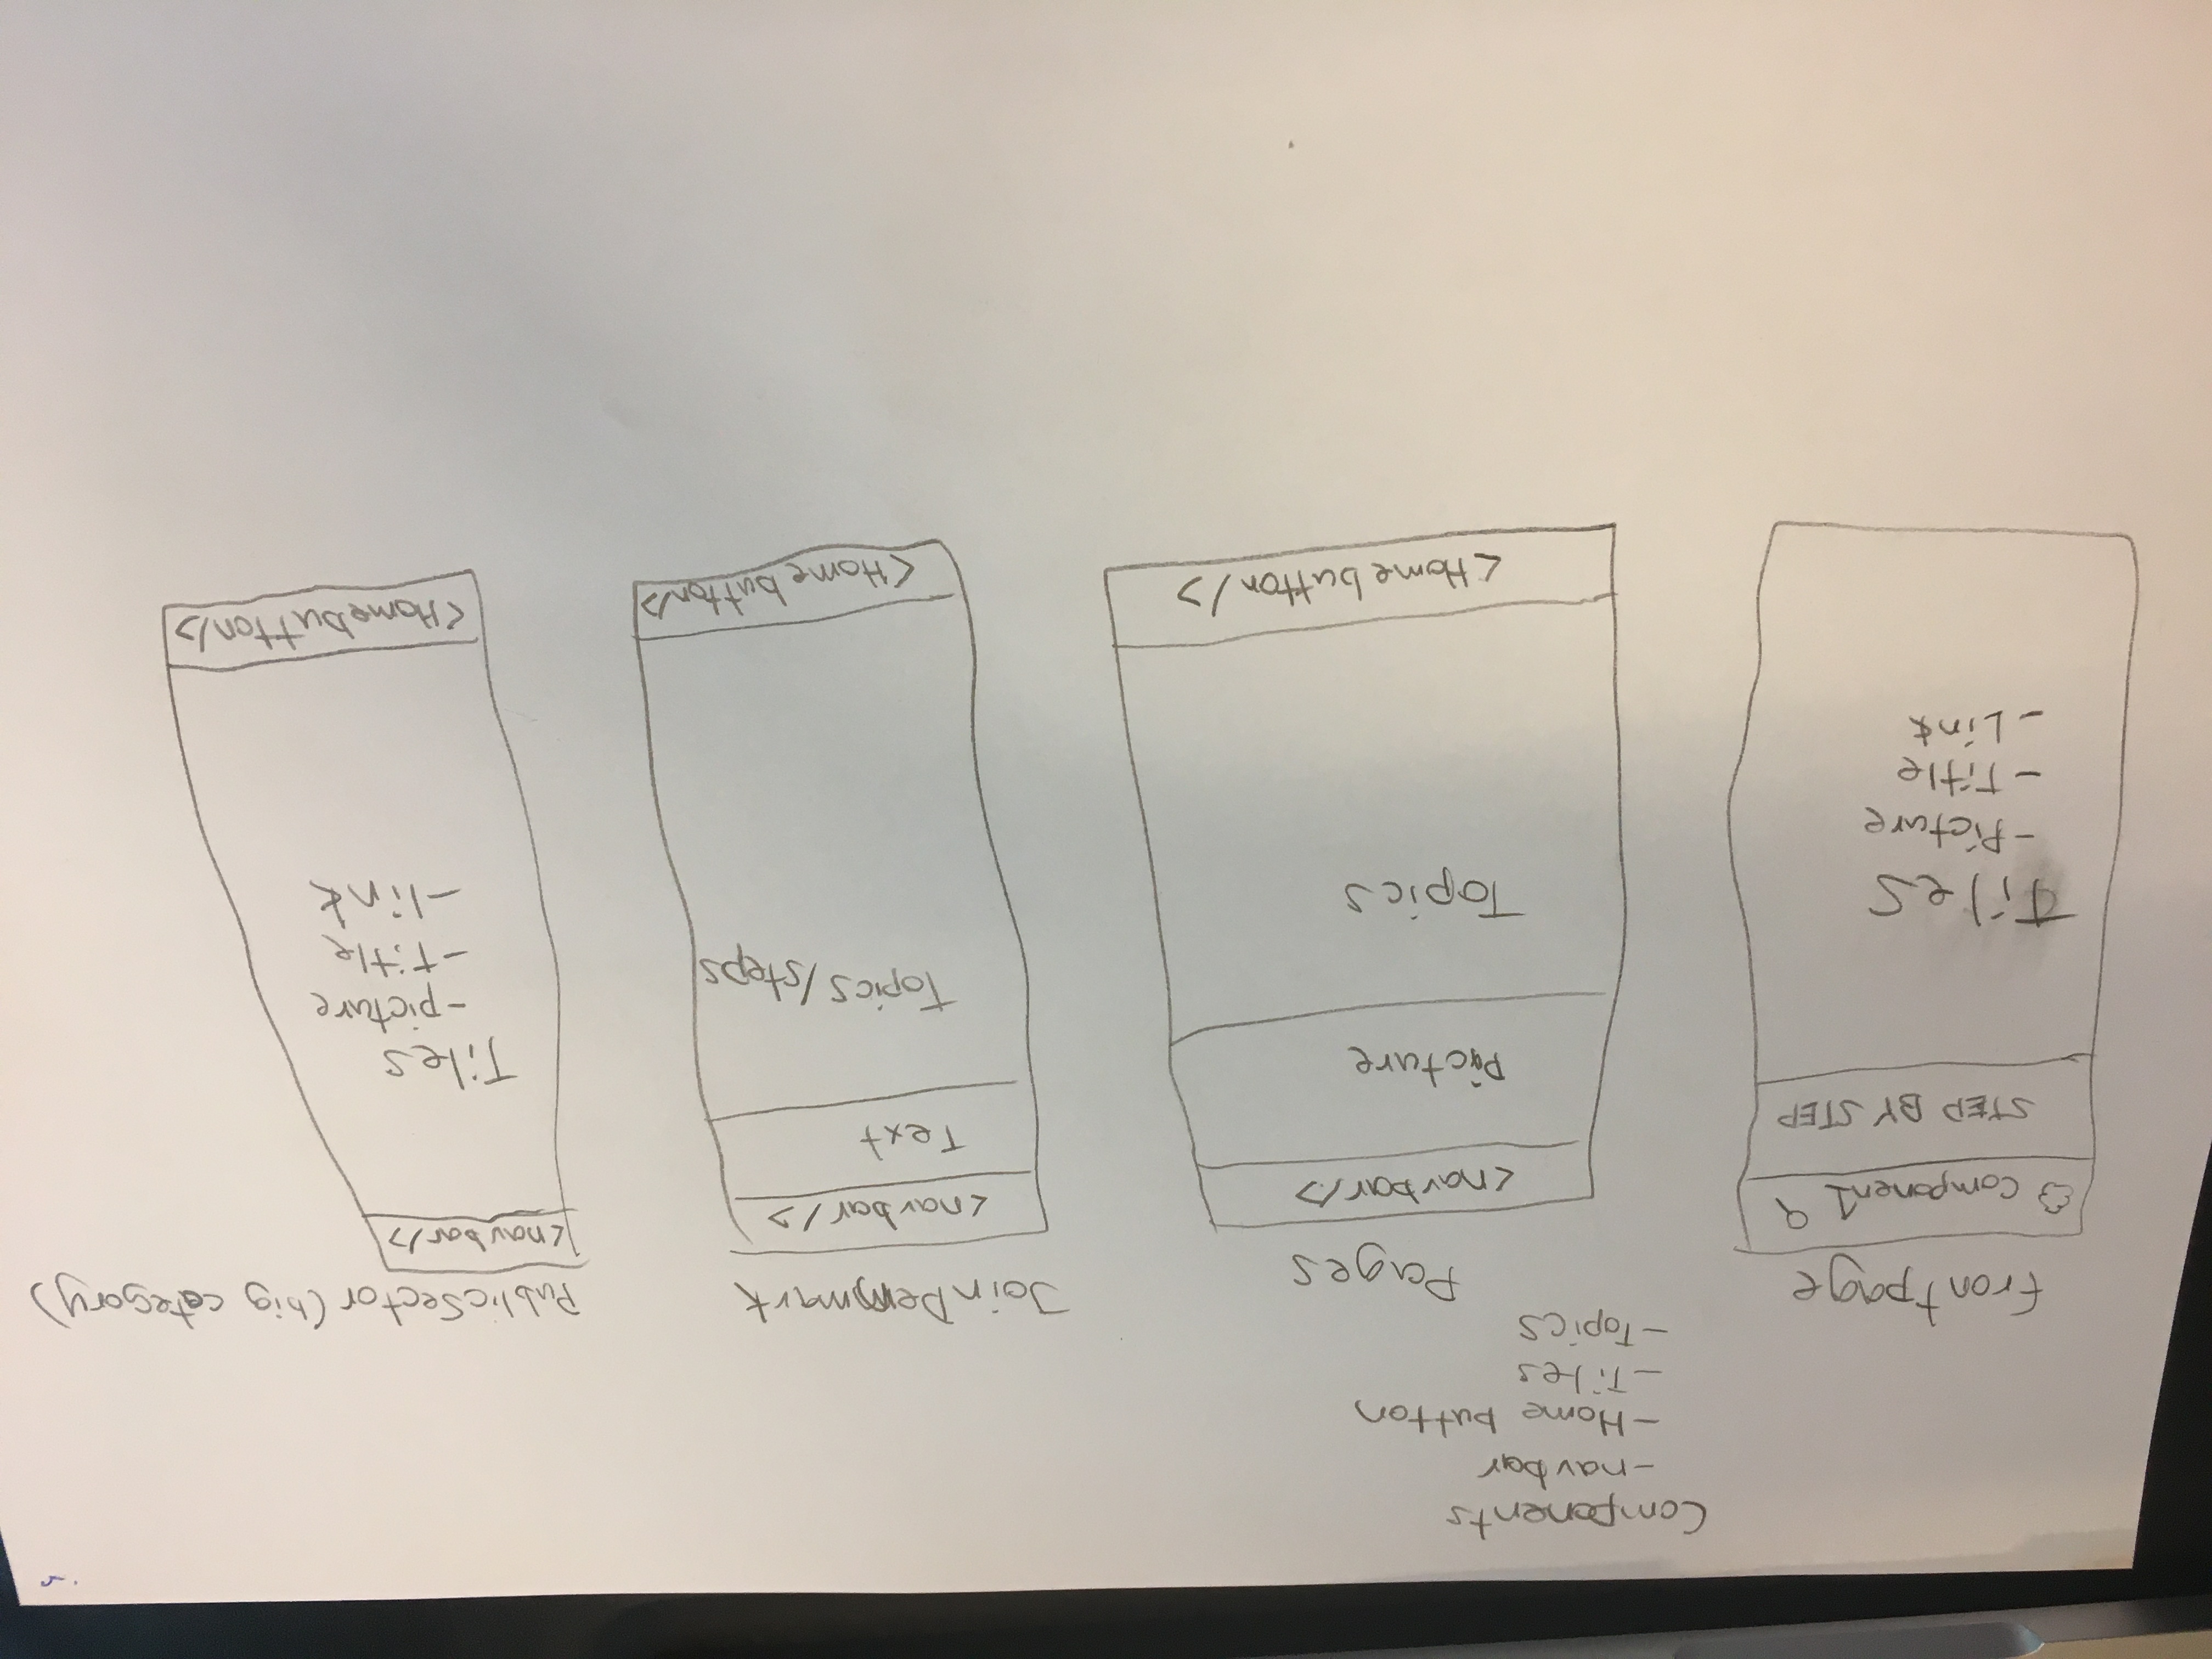 Components
- navbar
- Home button
- Tiles
- Topics
frontpage
component
STEP BY STEP
Tiles
- Picture
- Title
- Link
Pages
<navbar/>
Picture
Topics
<Homebutton/>
<navbar/>
Text
Topics/steps
<Homebutton/>
PublicSector (big category)
<navbar/>
Tiles
- picture
- Title
- link
<Homebutton/>